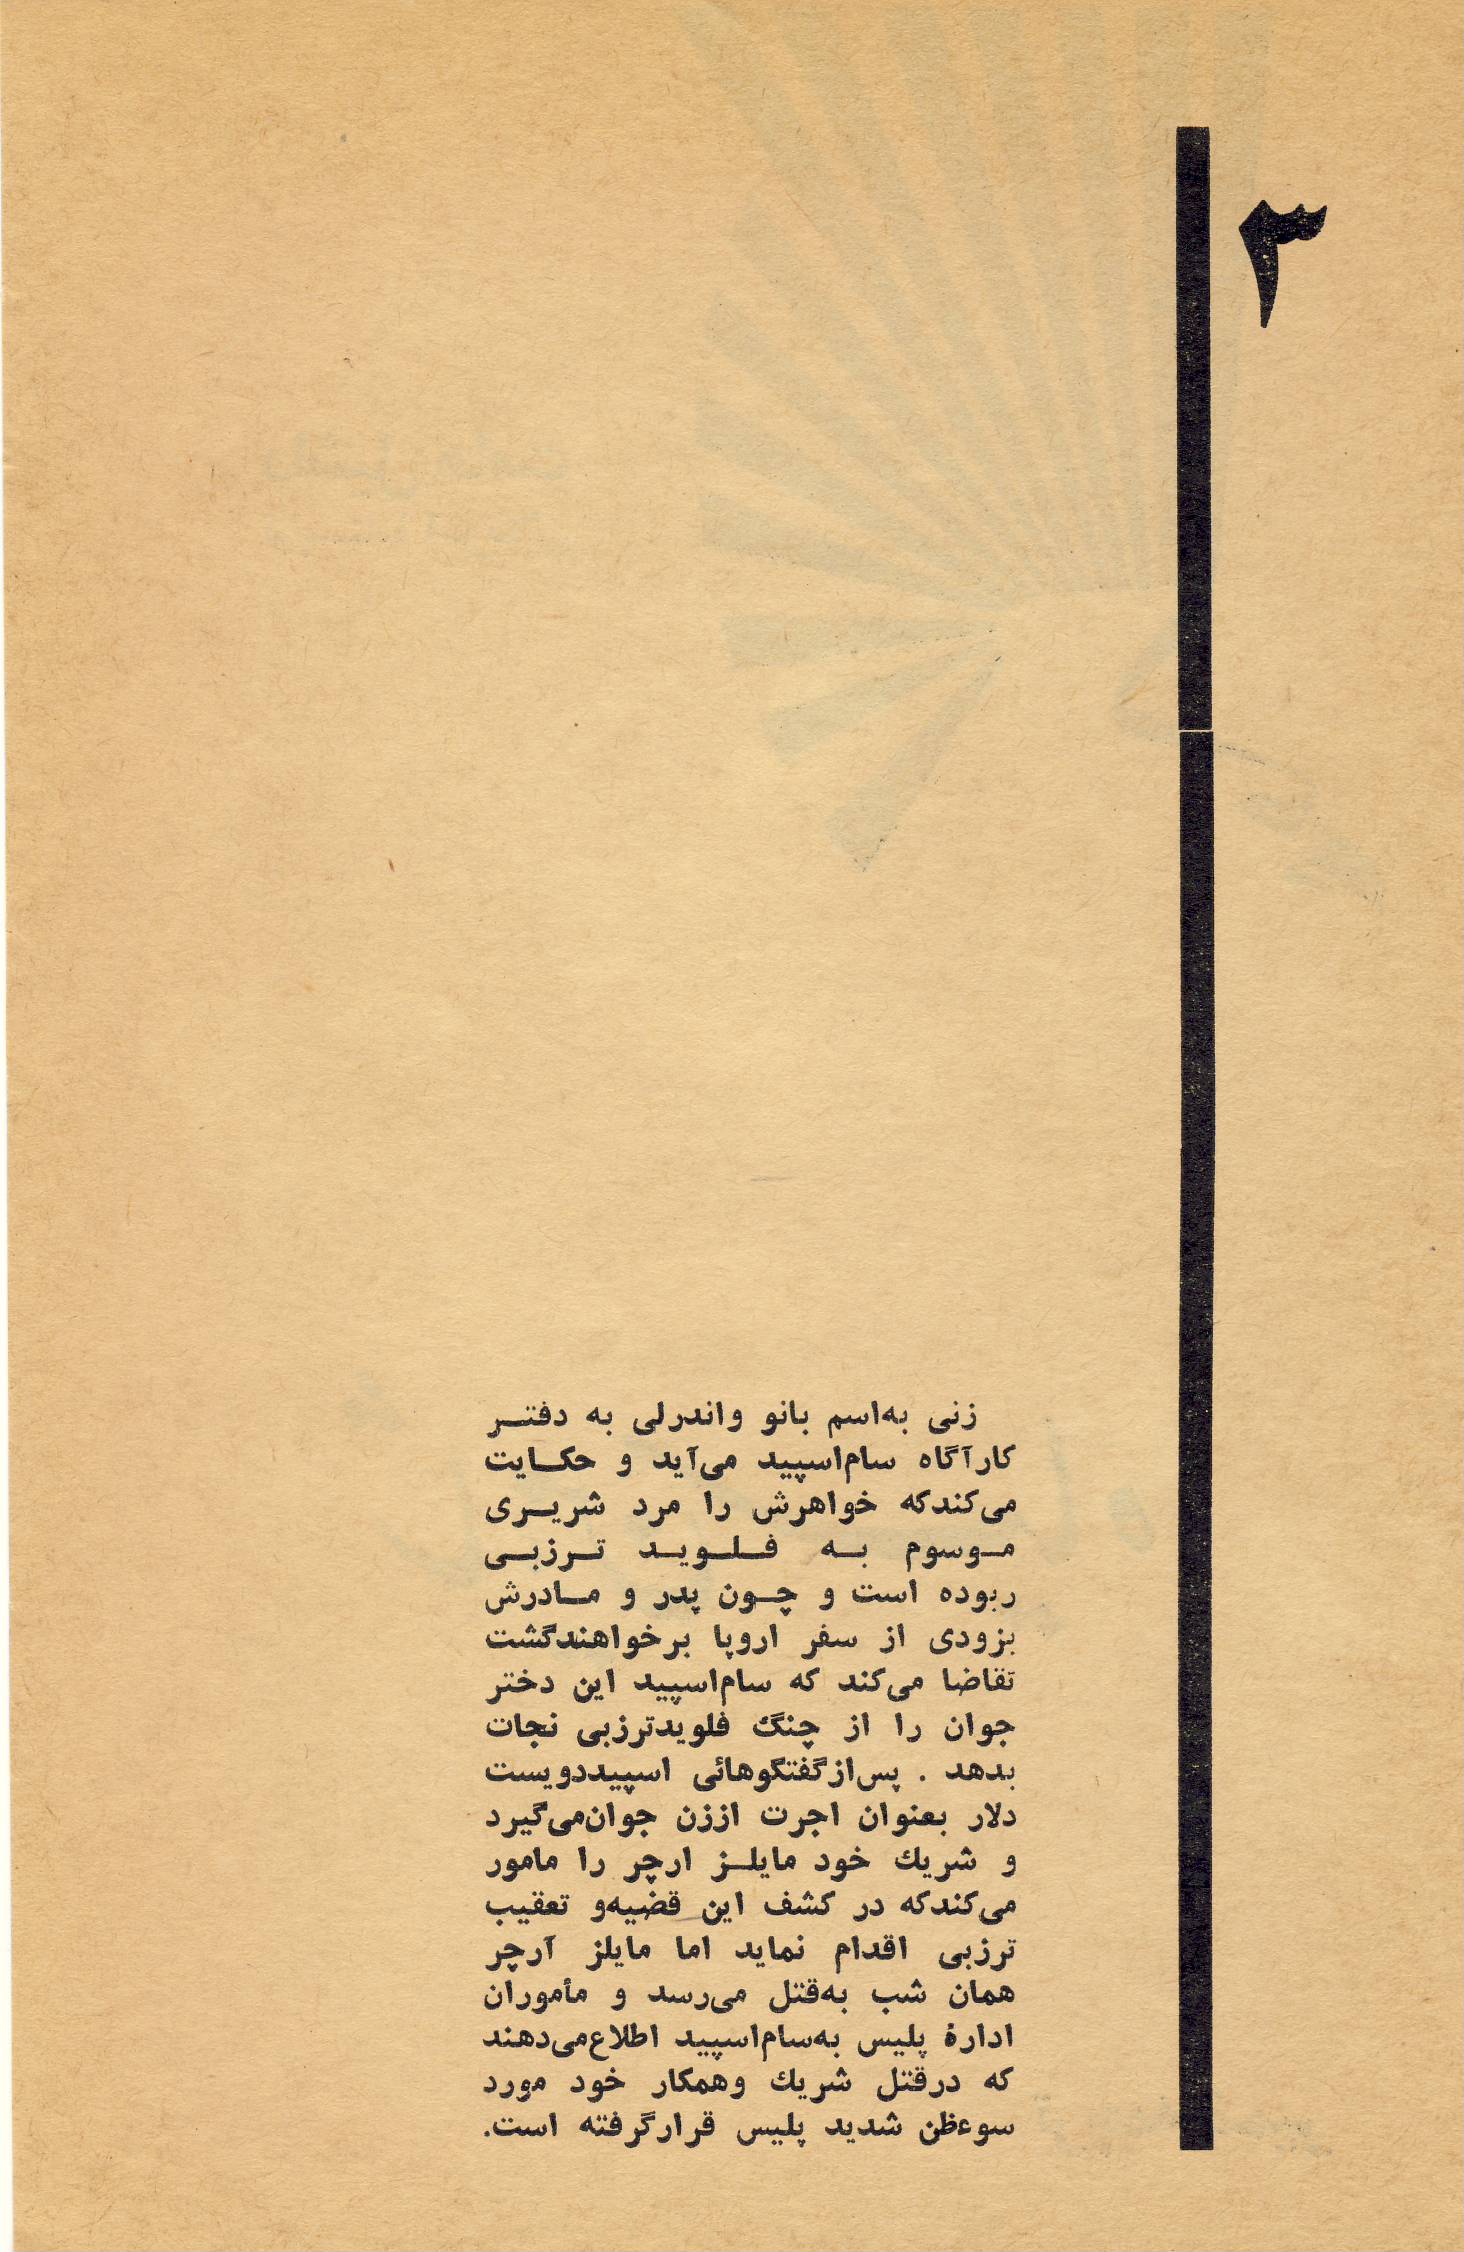 ۳
زنی به‌اسم بانو واندرلی به دفتر
کارآگاه سام‌اسپید می‌آید و حکایت
می‌کندکه خواهرش را مرد شریری
موسوم به فلوید ترزبی
ربوده است و چون پدر و مادرش
بزودی از سفر اروپا برخواهندگشت
تقاضا می‌کند که سام‌اسپید این دختر
جوان را از چنگ فلویدترزبی نجات
بدهد . پس‌ازگفتگوهائی اسپیددویست
دلار بعنوان اجرت اززن جوان‌می‌گیرد
و شریك خود مایلز ارچر را مامور
می‌کندکه در کشف این قضیه‌و تعقیب
ترزبی اقدام نماید اما مایلز آرچر
همان شب به‌قتل می‌رسد و مأموران
ادارهٔ پلیس به‌سام‌اسپید اطلاع‌می‌دهند
که درقتل شریك وهمکار خود مورد
سوءظن شدید پلیس قرارگرفته است.